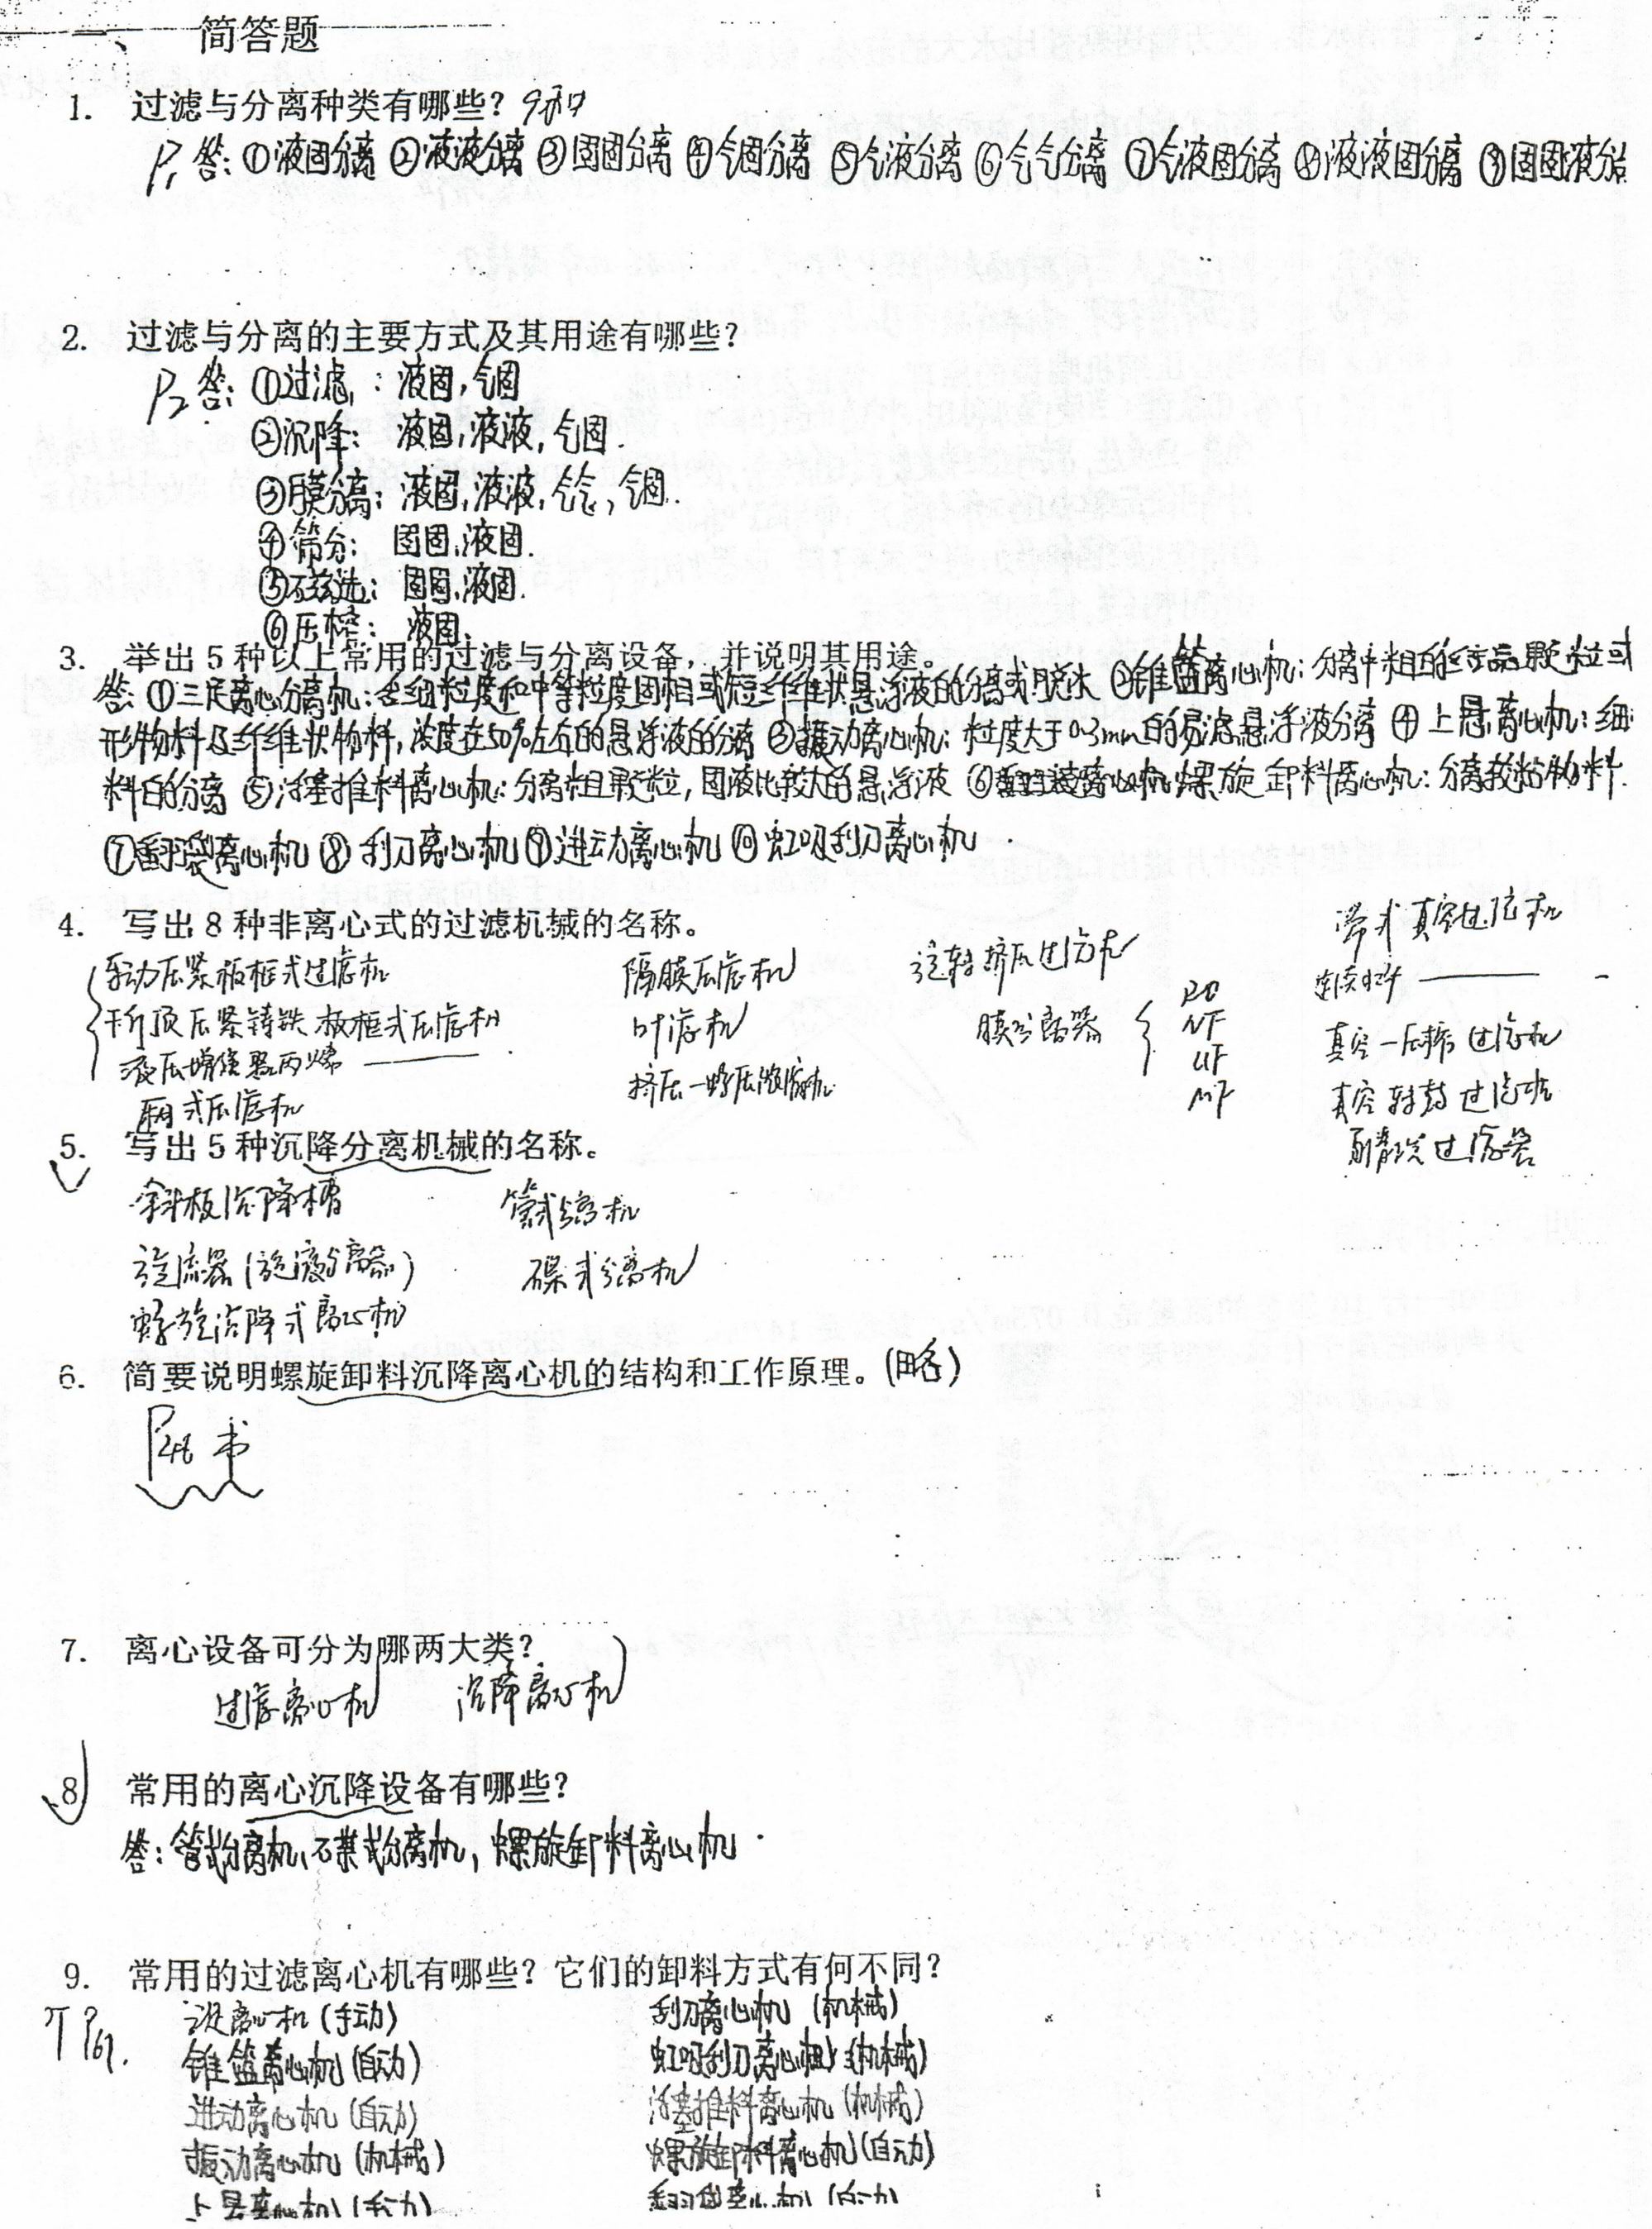 一、 简答题
1. 过滤与分离种类有哪些？9种
P1 答：①液固分离 ②液液分离 ③固固分离 ④气固分离 ⑤气液分离 ⑥气气分离 ⑦气液固分离 ⑧液液固分离 ⑨固固液分离
2. 过滤与分离的主要方式及其用途有哪些？
P2 答：①过滤：液固，气固
②沉降：液固，液液，气固.
③膜分离：液固，液液，气气，气固.
④筛分：固固，液固.
⑤磁选：固固，液固.
⑥压榨：液固.
3. 举出5种以上常用的过滤与分离设备，并说明其用途。
答：①三足离心分离机：含细粒度和中等粒度固相或短纤维状悬浮液的分离或脱水 ②锥篮离心机：分离中粗的结晶颗粒或
形物料及纤维状物料，浓度在50%左右的悬浮液的分离 ③振动离心机：粒度大于0.3mm的易滤悬浮液分离 ④上悬离心机：细
料的分离 ⑤活塞推料离心机：分离粗颗粒，固液比较大的悬浮液 ⑥螺旋卸料离心机：分离较粘物料.
⑦翻袋离心机 ⑧刮刀离心机 ⑨进动离心机 ⑩虹吸刮刀离心机
4. 写出8种非离心式的过滤机械的名称。
手动压紧板框式过滤机 隔膜压滤机 旋转挤压过滤机 带式真空过滤机
千斤顶压紧铸铁板框式压滤机 叶滤机 膜分离器 { RO NF UF MF 连续水平 ———
液压 聚丙烯 ——— 挤压— 真空—压榨过滤机
厢式压滤机 真空转鼓过滤机
过滤器
5. 写出5种沉降分离机械的名称。
斜板沉降槽 管式分离机
旋流器（旋液分离器） 碟式分离机
螺旋沉降式离心机
6. 简要说明螺旋卸料沉降离心机的结构和工作原理。（略）
P48 书
7. 离心设备可分为哪两大类？
过滤离心机 沉降离心机
8 常用的离心沉降设备有哪些？
答：管式分离机、碟式分离机，螺旋卸料离心机.
9. 常用的过滤离心机有哪些？它们的卸料方式有何不同？
三足离心机（手动） 刮刀离心机（机械）
锥篮离心机（自动） 虹吸刮刀离心机（机械）
进动离心机（自动） 活塞推料离心机（机械）
振动离心机（机械） 螺旋卸料离心机（自动）
上悬离心机（手动） 翻袋离心机（自动）